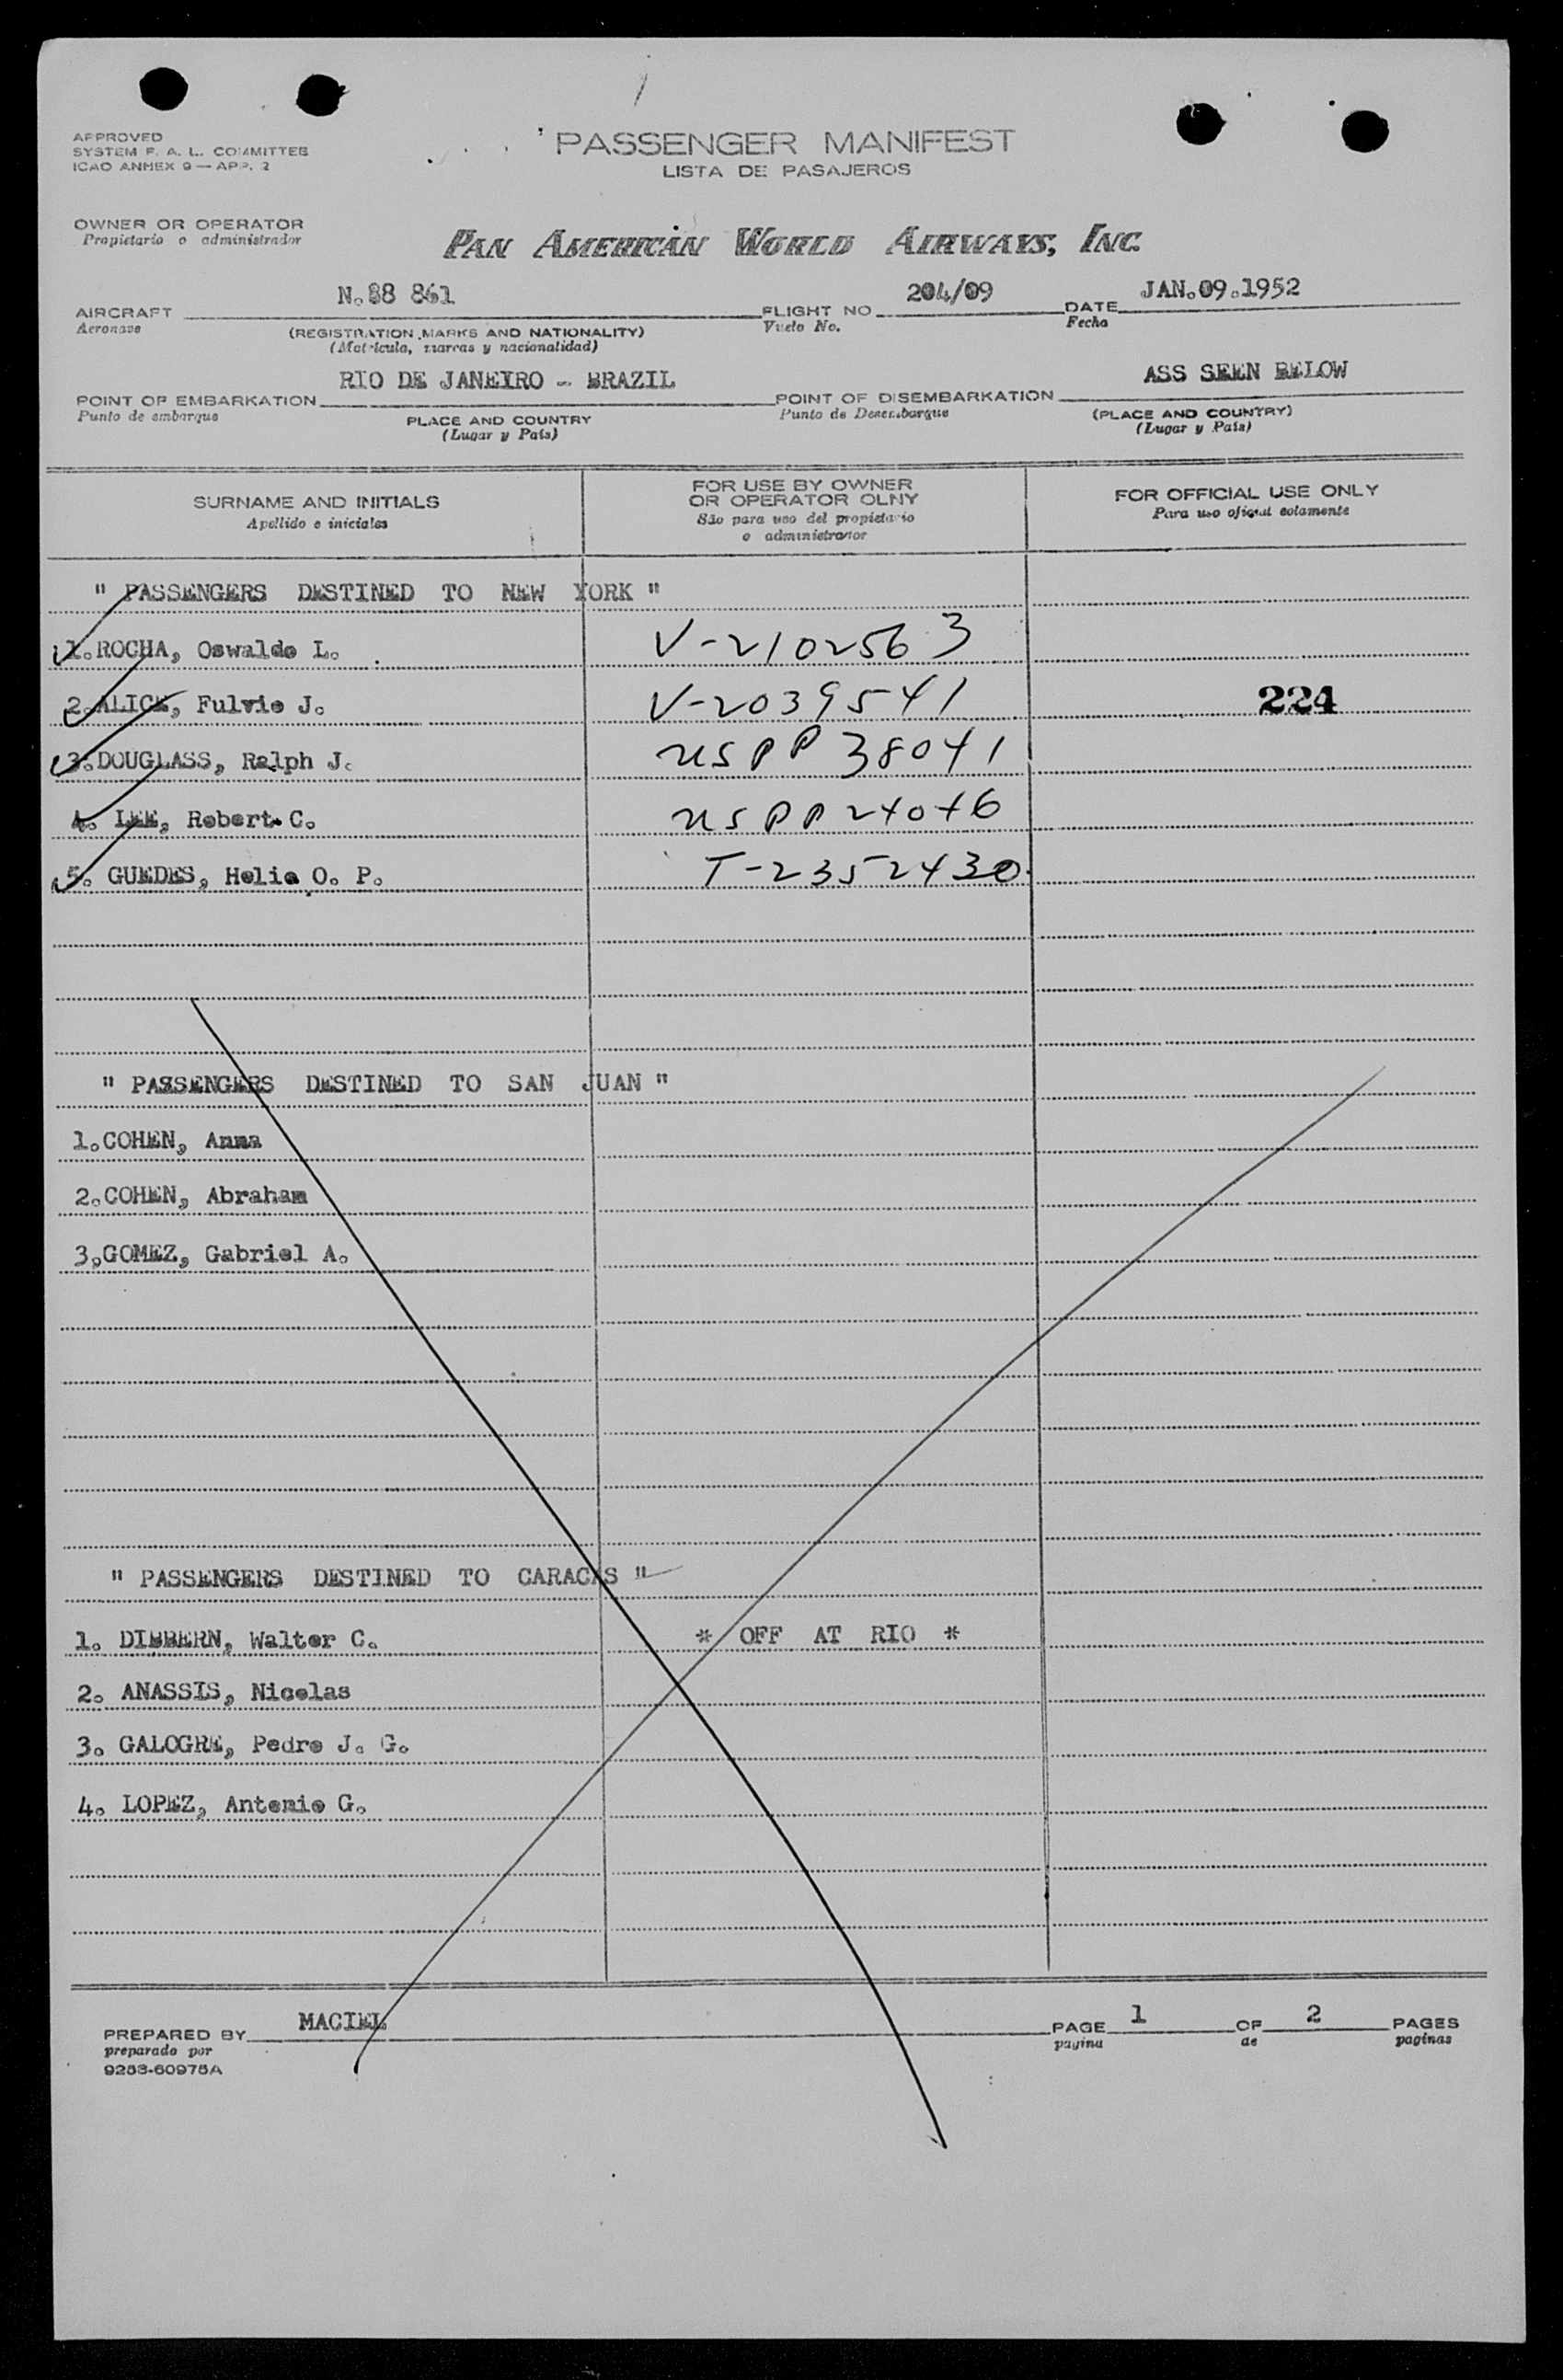 APPROVED
SYSTEM F. A. L. COMMITTEE
ICAO ANNEX 9 — APP. 2
PASSENGER MANIFEST
LISTA DE PASAJEROS
OWNER OR OPERATOR
Propietario o administrador
PAN AMERICAN WORLD AIRWAYS, INC.
AIRCRAFT N.88 861 FLIGHT NO 204/09 DATE JAN.09.1952
Aeronave (REGISTRATION MARKS AND NATIONALITY) Vuelo No. Fecha
(Matricula, marcas y nacionalidad)
POINT OF EMBARKATION RIO DE JANEIRO - BRAZIL POINT OF DISEMBARKATION ASS SEEN BELOW
Punto de embarque PLACE AND COUNTRY Punto de Desembarque (PLACE AND COUNTRY)
(Lugar y País) (Lugar y País)
SURNAME AND INITIALS
Apellido e iniciales
FOR USE BY OWNER
OR OPERATOR OLNY
São para uso del propietario
o administrador
FOR OFFICIAL USE ONLY
Para uso oficial solamente
" PASSENGERS DESTINED TO NEW YORK "
1.ROCHA, Oswaldo L. V-2102563
2.ALICE, Fulvio J. V-2039541 224
3.DOUGLASS, Ralph J. USPP 38041
4. LEE, Robert C. USPP 24046
5. GUEDES, Helio O. P. T-2352430
" PASSENGERS DESTINED TO SAN JUAN "
1.COHEN, Anna
2.COHEN, Abraham
3.GOMEZ, Gabriel A.
" PASSENGERS DESTINED TO CARACAS "
1. DIBBERN, Walter C. * OFF AT RIO *
2. ANASSIS, Nicolas
3. GALOGRE, Pedro J. G.
4. LOPEZ, Antonio G.
PREPARED BY MACIEL PAGE 1 OF 2 PAGES
preparado por pagina de paginas
9253-60975A